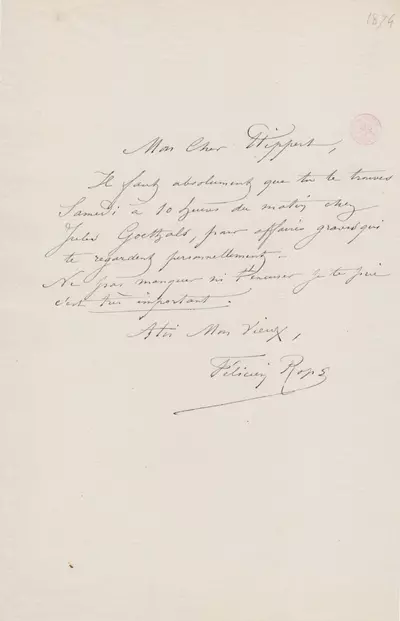 1874
Mon Cher Flippert,
Il faut absolument que tu te trouves
Samedi à 10 heures du matin chez
Jules Goethals, pour affaires graves qui
te regardent personnellement –
Ne pas manquer ni t'excuser je te prie
c'est très important.
A toi Mon Vieux,
Félicien Rops